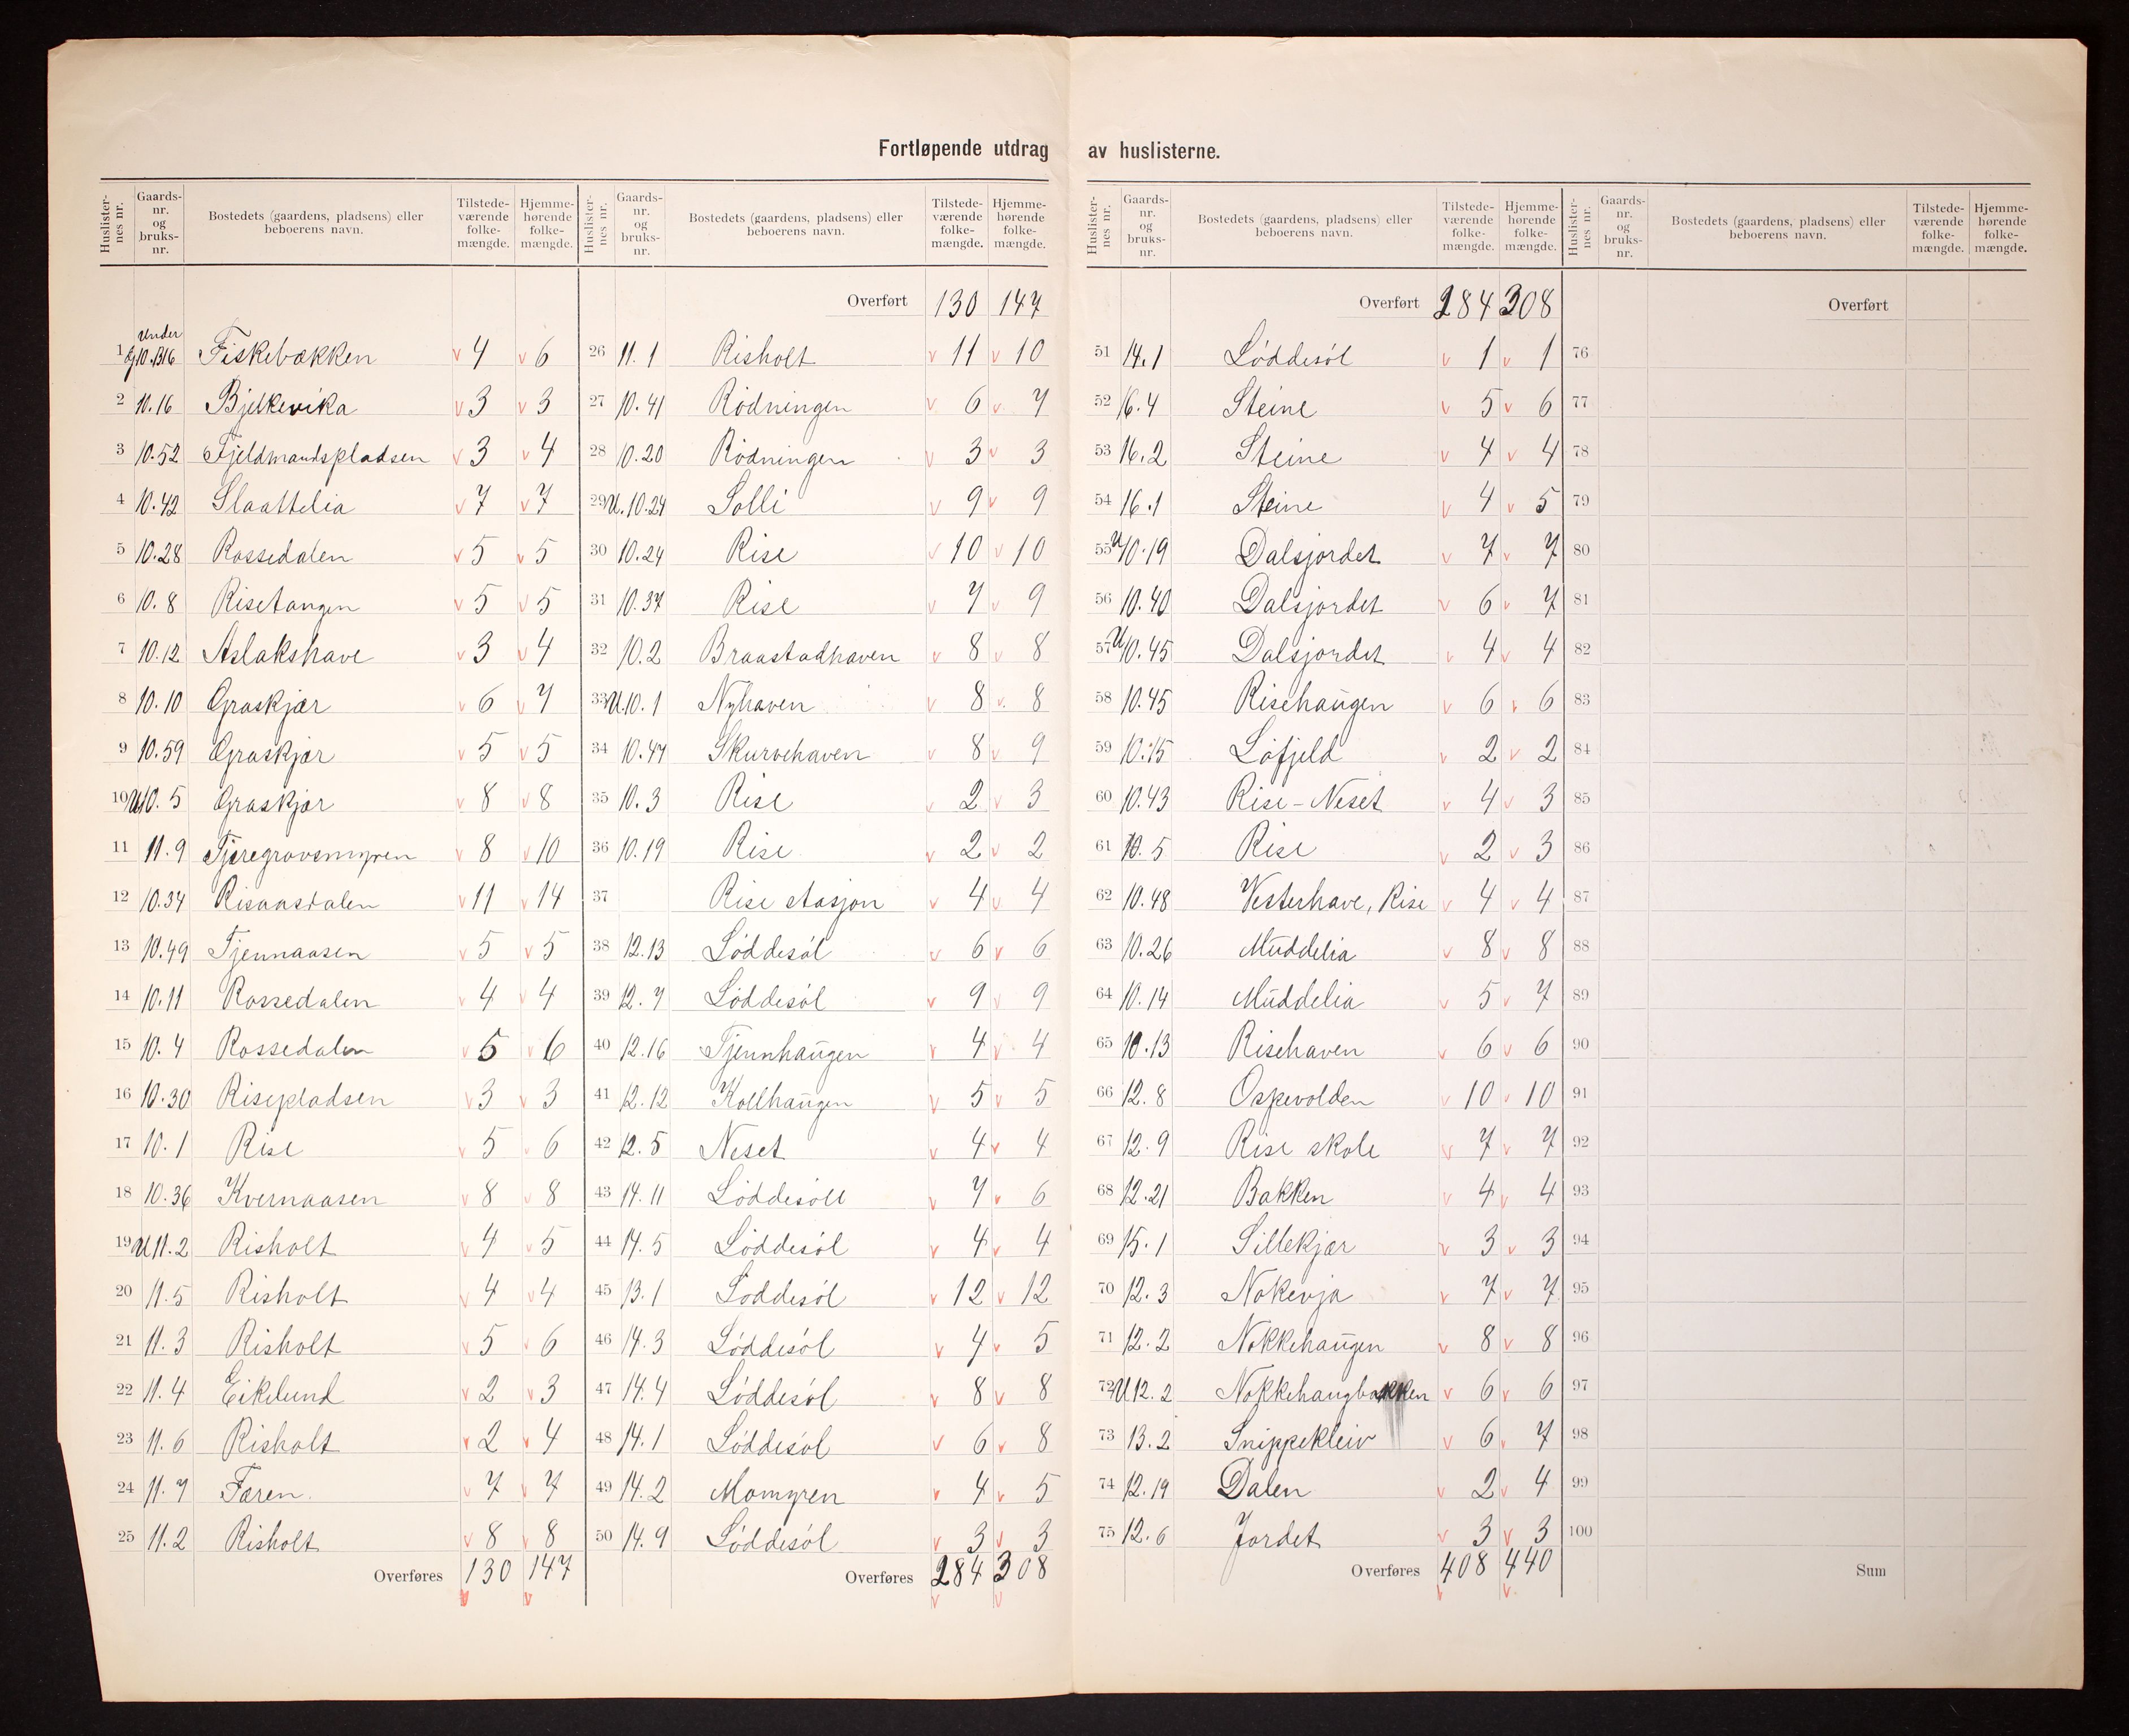 Fortløpende utdrag av huslisterne.
Huslister-nes nr. | Gaards-nr. og bruks-nr. | Bostedets (gaardens, pladsens) eller beboerens navn. | Tilstede-værende folke-mængde. | Hjemme-hørende folke-mængde.
1 | Under g 10. B16 | Fiskebækken | 4 | 6
2 | 10.16 | Bjelkevika | 3 | 3
3 | 10.52 | Fjeldmandspladsen | 3 | 4
4 | 10.42 | Slaattelia | 7 | 7
5 | 10.28 | Rossedalen | 5 | 5
6 | 10.8 | Risetangen | 5 | 5
7 | 10.12 | Aslakshave | 3 | 4
8 | 10.10 | Graskjær | 6 | 7
9 | 10.59 | Graskjær | 5 | 5
10 | U 10.5 | Graskjær | 8 | 8
11 | 11.9 | Tjæregravsmyren | 8 | 10
12 | 10.34 | Risaasdalen | 11 | 14
13 | 10.49 | Tjennaasen | 5 | 5
14 | 10.11 | Rossedalen | 4 | 4
15 | 10.4 | Rossedalen | 5 | 6
16 | 10.30 | Risepladsen | 3 | 3
17 | 10.1 | Rise | 5 | 6
18 | 10.36 | Kvernaasen | 8 | 8
19 | U 11.2 | Risholt | 4 | 5
20 | 11.5 | Risholt | 4 | 4
21 | 11.3 | Risholt | 5 | 6
22 | 11.4 | Eikelund | 2 | 3
23 | 11.6 | Risholt | 2 | 4
24 | 11.7 | Faren. | 7 | 7
25 | 11.2 | Risholt | 8 | 8
Overføres 130 147
Huslister-nes nr. | Gaards-nr. og bruks-nr. | Bostedets (gaardens, pladsens) eller beboerens navn. | Tilstede-værende folke-mængde. | Hjemme-hørende folke-mængde.
Overført 130 147
26 | 11.1 | Risholt | 11 | 10
27 | 10.41 | Rødningen | 6 | 7
28 | 10.20 | Rødningen | 3 | 3
29 | U. 10.24 | Solli | 9 | 9
30 | 10.24 | Rise | 10 | 10
31 | 10.37 | Rise | 7 | 9
32 | 10.2 | Braastadhaven | 8 | 8
33 | U. 10.1 | Nyhaven | 8 | 8
34 | 10.47 | Skurvehaven | 8 | 9
35 | 10.3 | Rise | 2 | 3
36 | 10.19 | Rise | 2 | 2
37 | Rise stasjon | 4 | 4
38 | 12.13 | Løddesøl | 6 | 6
39 | 12.7 | Løddesøl | 9 | 9
40 | 12.16 | Tjennhaugen | 4 | 4
41 | 12.12 | Kollhaugen | 5 | 5
42 | 12.5 | Neset | 4 | 4
43 | 14.11 | Løddesøll | 7 | 6
44 | 14.5 | Løddesøl | 4 | 4
45 | 13.1 | Løddesøl | 12 | 12
46 | 14.3 | Løddesøl | 4 | 5
47 | 14.4 | Løddesøl | 8 | 8
48 | 14.1 | Løddesøl | 6 | 8
49 | 14.2 | Momyren | 4 | 5
50 | 14.9 | Løddesøl | 3 | 3
Overføres 284 308
Huslister-nes nr. | Gaards-nr. og bruks-nr. | Bostedets (gaardens, pladsens) eller beboerens navn. | Tilstede-værende folke-mængde. | Hjemme-hørende folke-mængde.
Overført 284 308
51 | 14.1 | Løddesøl | 1 | 1
52 | 16.4 | Steine | 5 | 6
53 | 16.2 | Steine | 4 | 4
54 | 16.1 | Steine | 4 | 5
55 | U 10.19 | Dalsjordet | 7 | 7
56 | 10.40 | Dalsjordet | 6 | 7
57 | U 10.45 | Dalsjordet | 4 | 4
58 | 10.45 | Risehaugen | 6 | 6
59 | 10.15 | Løfjeld | 2 | 2
60 | 10.43 | Rise-Neset | 4 | 3
61 | 10.5 | Rise | 2 | 3
62 | 10.48 | Vesterhave, Rise | 4 | 4
63 | 10.26 | Muddelia | 8 | 8
64 | 10.14 | Muddelia | 5 | 7
65 | 10.13 | Risehaven | 6 | 6
66 | 12.8 | Ospevolden | 10 | 10
67 | 12.9 | Rise skole | 7 | 7
68 | 12.21 | Bakken | 4 | 4
69 | 15.1 | Sillekjær | 3 | 3
70 | 12.3 | Nøkevja | 7 | 7
71 | 12.2 | Nøkkehaugen | 8 | 8
72 | U 12.2 | Nøkkehaugbakken | 6 | 6
73 | 13.2 | Snippekleiv | 6 | 7
74 | 12.19 | Dalen | 2 | 4
75 | 12.6 | Jordet | 3 | 3
Overføres 408 440
Huslister-nes nr. | Gaards-nr. og bruks-nr. | Bostedets (gaardens, pladsens) eller beboerens navn. | Tilstede-værende folke-mængde. | Hjemme-hørende folke-mængde.
Overført
76
77
78
79
80
81
82
83
84
85
86
87
88
89
90
91
92
93
94
95
96
97
98
99
100
Sum